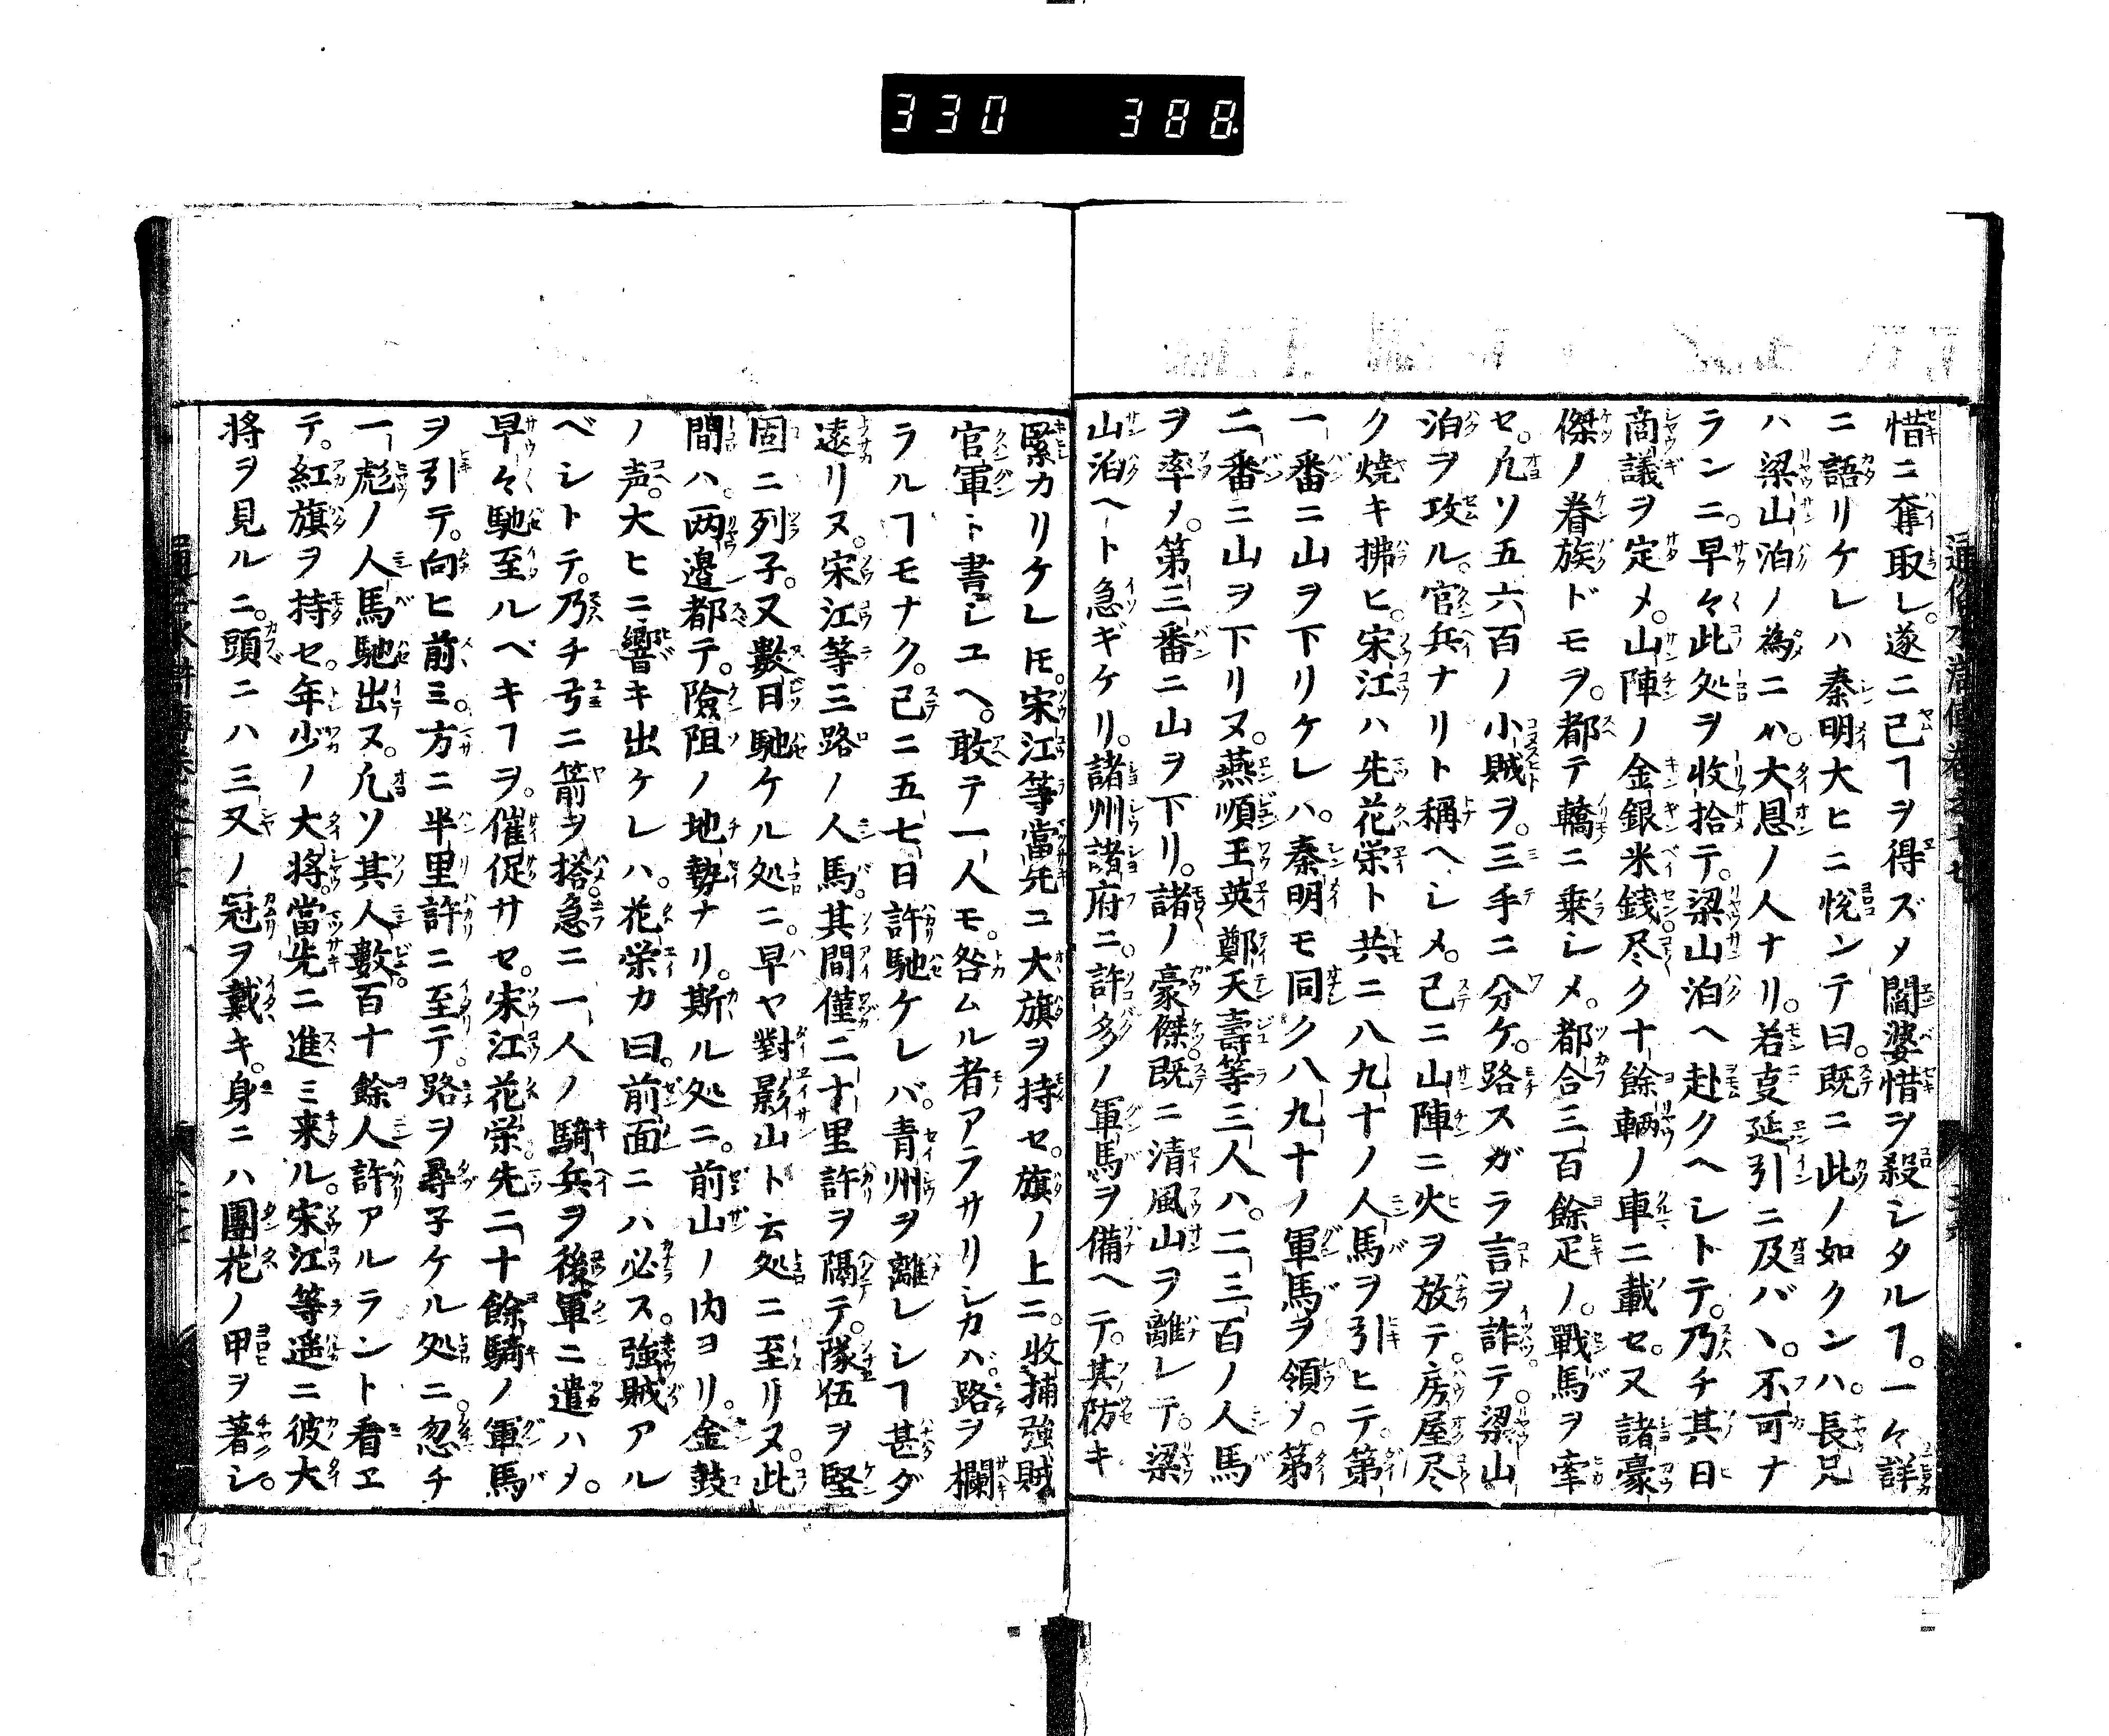 330 388.
惜ニ奪取レ。遂ニ已ヿヲ得ズメ閻婆惜ヲ殺シタルヿ。一々詳
ニ語リケレハ秦明大ヒニ悦ンテ曰。既ニ此ノ如クンハ。長兄
ハ梁山泊ノ為ニハ。大恩ノ人ナリ。若支延引ニ及バヽ。不可ナ
ランニ。早々此処ヲ收拾テ。梁山泊ヘ赴クヘシトテ。乃チ其日
商議ヲ定メ。山陣ノ金銀米銭尽ク十餘輌ノ車ニ載セ。又諸豪
傑ノ眷族ドモヲ。都テ轎ニ乗レメ。都合三百餘疋ノ。戰馬ヲ牽
セ。凢ソ五六百ノ小賊ヲ。三手ニ分ケ。路スガラ言ヲ詐テ。梁山
泊ヲ攻ル。官兵ナリト稱ヘレメ。已ニ山陣ニ火ヲ放テ。房屋尽
ク焼キ拂ヒ。宋江ハ先花栄ト共ニ八九十ノ人馬ヲ引ヒテ。第
一番ニ山ヲ下リケレハ。秦明モ同ク八九十ノ軍馬ヲ領メ。第
二番ニ山ヲ下リヌ。燕順王英鄭天壽等三人ハ。二三百ノ人馬
ヲ率メ。第三番ニ山ヲ下リ。諸ノ豪傑既ニ清風山ヲ離レテ。梁
山泊ヘト急ギケリ。諸州諸府ニ。許多ノ軍馬ヲ備ヘテ。其防キ
緊カリケレ𪜈。宋江等當先ニ大旗ヲ持セ。旗ノ上ニ。收捕強賊
官軍ト書レユヘ。敢テ一人モ。咎ムル者アラサリシカバ。路ヲ欄
ラルヿモナク。已ニ五七日許馳ケレバ。青州ヲ離レシヿ甚ダ
遠リヌ。宋江等三路ノ人馬。其間僅二十里許ヲ隔テ。隊伍ヲ堅
固ニ列子。又數日馳ケル処ニ。早ヤ對影山ト云処ニ至リヌ。此
間ハ。两邉都テ。險阻ノ地勢ナリ。斯ル処ニ。前山ノ内ヨリ。金鼓
ノ声。大ヒニ響キ出ケレハ。花栄カ曰。前面ニハ必ス。強賊アル
ベシトテ。乃チ弓ニ箭ヲ搭。急ニ一人ノ騎兵ヲ後軍ニ遣ハメ。
早々馳至ルベキヿヲ。催促サセ。宋江花栄。先二十餘騎ノ軍馬
ヲ引テ。向ヒ前ミ。方ニ半里許ニ至テ。路ヲ尋子ケル処ニ。忽チ
一彪ノ人馬馳出ヌ。凢ソ其人數百十餘人許アルラント看エ
テ。紅旗ヲ持セ。年少ノ大將。當先ニ進ミ来ル。宋江等遥ニ彼大
将ヲ見ルニ。頭ニハ三叉ノ冠ヲ戴キ。身ニハ團花ノ甲ヲ著シ。